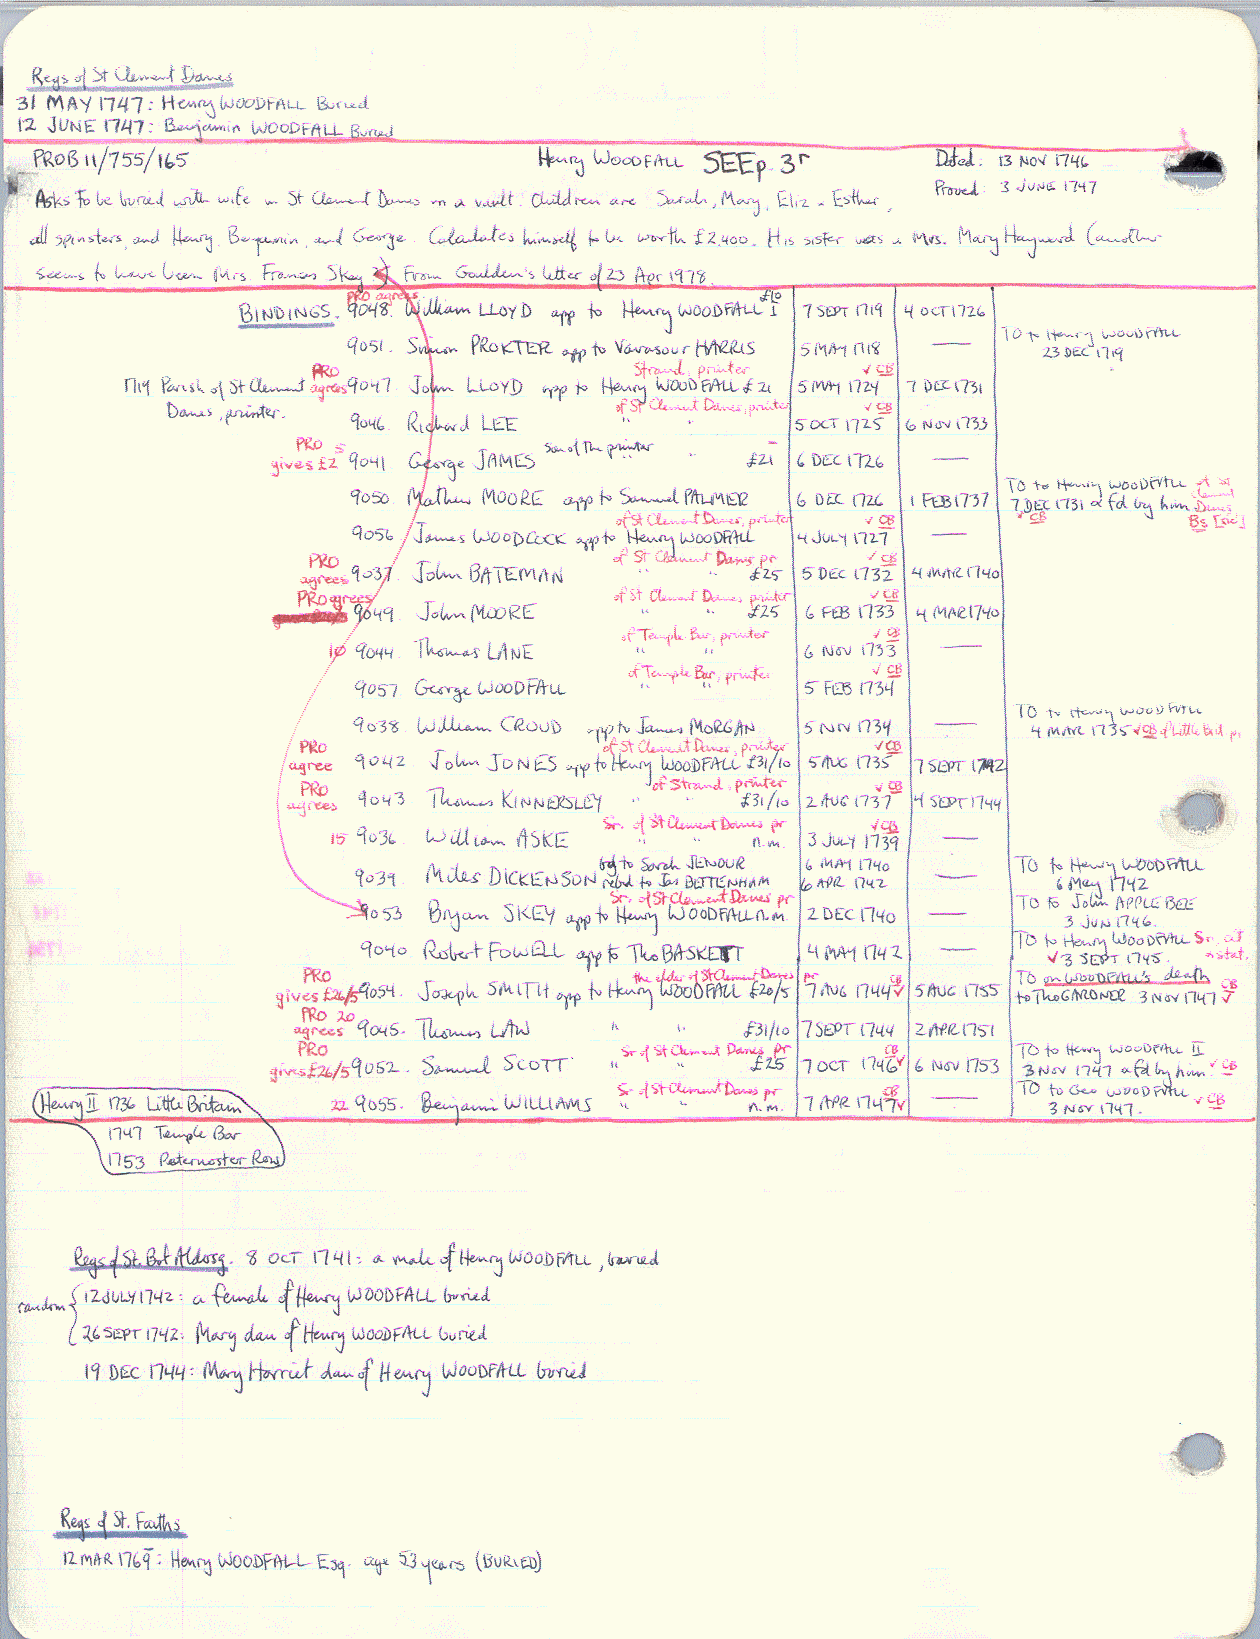 Regs of St Clement Danes
31 MAY 1747: Henry WOODFALL Buried
12 JUNE 1747: Benjamin WOODFALL Buried
PROB 11/755/165 Henry WOODFALL SEE p. 3r Dated: 13 NOV 1746
Proved: 3 JUNE 1747
Asks to be buried with wife in St Clement Danes in a vault. Children are Sarah, Mary, Eliz & Esther,
all spinsters, and Henry, Benjamin, and George. Calculates himself to be worth £2,400. His sister was a Mrs. Mary Hayward (another
seems to have been Mrs. Frances Skey). From Goulden's letter of 23 Apr 1978.
PRO agrees £10
BINDINGS. 9048. William LLOYD app to Henry WOODFALL I 7 SEPT 1719 4 OCT 1726
9051. Simon PROKTER app to Vavasour HARRIS 5 MAY 1718 — TO to Henry WOODFALL
23 DEC 1719
PRO Strand, printer ✓ CB
1719 Parish of St Clement agrees 9047. John LLOYD app to Henry WOODFALL £21 5 MAY 1724 7 DEC 1731
Danes, printer. of St Clement Danes, printer ✓ CB
9046. Richard LEE " " 5 OCT 1725 6 NOV 1733
PRO 5 son of the printer
gives £2 9041 George JAMES " " £21 6 DEC 1726 —
9050. Mathew MOORE app to Samuel PALMER 6 DEC 1726 1 FEB 1737 TO to Henry WOODFALL of St
7 DEC 1731 & fd by him Clement Danes
✓ CB Bs [sic]
of St Clement Danes, printer ✓ CB
9056 James WOODCOCK app to Henry WOODFALL 4 JULY 1727 —
PRO of St Clement Danes pr ✓ CB
agrees 9037. John BATEMAN " " £25 5 DEC 1732 4 MAR 1740
PRO agrees of St Clement Danes, printer ✓ CB
9049. John MOORE " " £25 6 FEB 1733 4 MAR 1740
of Temple Bar, printer ✓ CB
10 9044. Thomas LANE " " 6 NOV 1733 —
of Temple Bar, printer ✓ CB
9057 George WOODFALL " " 5 FEB 1734
9038. William CROUD app to James MORGAN 5 NOV 1734 — TO to Henry WOODFALL
4 MAR 1735 ✓ CB of Little Brit pr
PRO of St Clement Danes, printer ✓ CB
agree 9042. John JONES app to Henry WOODFALL £31/10 5 AUG 1735 7 SEPT 1742
PRO of Strand, printer ✓ CB
agrees 9043 Thomas KINNERSLEY " " £31/10 2 AUG 1737 4 SEPT 1744
Sr. of St Clement Danes pr ✓ CB
15 9036 William ASKE " " n.m. 3 JULY 1739 —
9039. Miles DICKENSON bd to Sarah JENOUR 6 MAY 1740 — TO to Henry WOODFALL
rebd to Jas BETTENHAM 6 APR 1742 6 May 1742
Sr. of St Clement Danes pr
9053 Bryan SKEY app to Henry WOODFALL n.m. 2 DEC 1740 — TO to John APPLEBEE
3 JUN 1746.
9040 Robert FOWELL app to Tho BASKETT 4 MAY 1742 — TO to Henry WOODFALL Sr, cit
✓ 3 SEPT 1745. & stat.
PRO the elder of St Clement Danes pr CB
gives £26/5 9054. Joseph SMITH app to Henry WOODFALL £20/5 7 AUG 1744 ✓ 5 AUG 1755 TO on WOODFALL's death CB
to Tho GARDNER 3 NOV 1747 ✓
PRO 20
agrees 9045. Thomas LAW " " £31/10 7 SEPT 1744 2 APR 1751
PRO Sr of St Clement Danes pr CB
gives £26/5 9052. Samuel SCOTT " " £25 7 OCT 1746 ✓ 6 NOV 1753 TO to Henry WOODFALL II
3 NOV 1747 & fd by him. ✓ CB
Sr of St Clement Danes pr CB
Henry II 1736 Little Britain 22 9055. Benjamin WILLIAMS " " n.m. 7 APR 1747 ✓ — TO to Geo WOODFALL
3 NOV 1747. ✓ CB
1747 Temple Bar
1753 Paternoster Row
Regs of St. Bot Aldersg. 8 OCT 1741: a male of Henry WOODFALL, buried
random 12 JULY 1742: a female of Henry WOODFALL buried
26 SEPT 1742: Mary dau of Henry WOODFALL buried
19 DEC 1744: Mary Harriet dau of Henry WOODFALL buried
Regs of St. Faiths
12 MAR 1769: Henry WOODFALL Esq. age 53 years (BURIED)